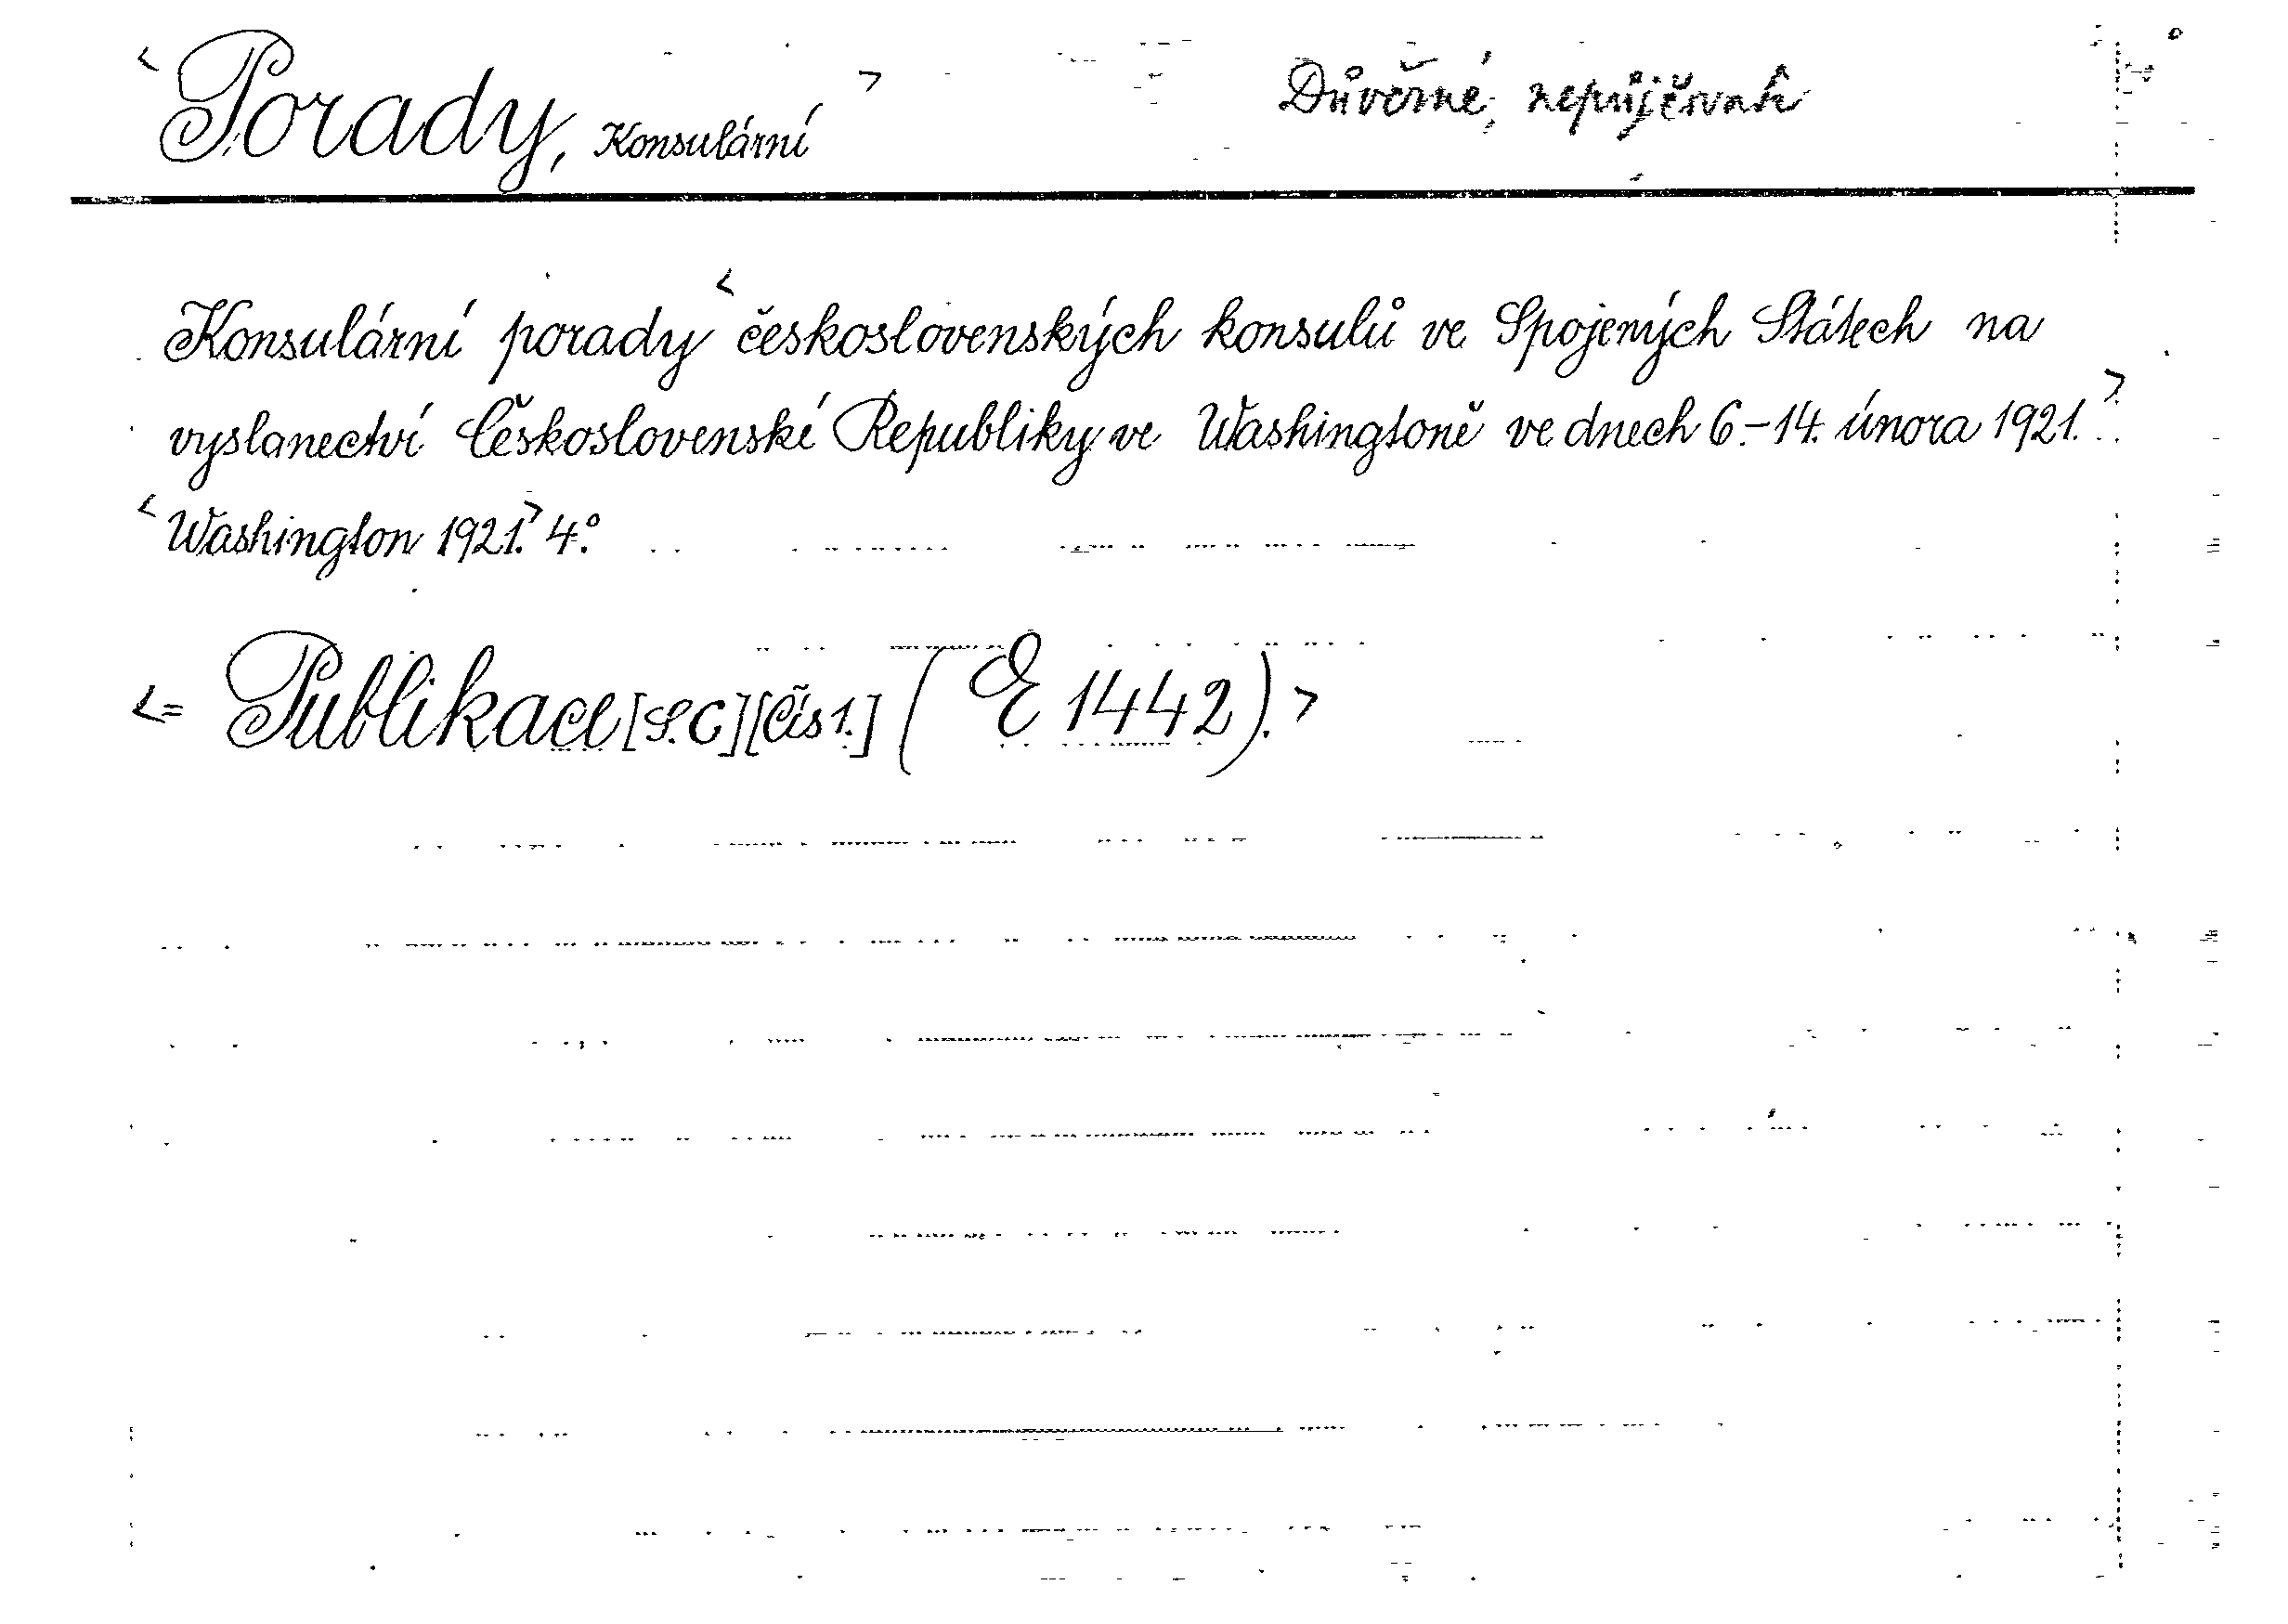 <Porady, Konsulární> Důvěrné, nepůjčovati
Konsulární porady <československých konsulů ve Spojených Státech na
vyslanectví Československé Republiky ve Washingtoně ve dnech 6.-14. února 1921.>
<Washington 1921.> 4.°
<= Publikace [S.C] [Čís 1.] (E 1442).>